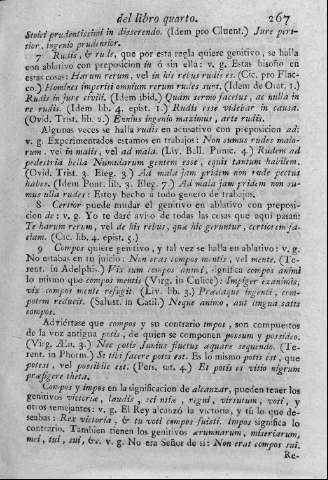 del libro quarto. 267
Stoici prudentissimi in disserendo. (Idem pro Cluent.) Jure peri-
tior, ingenio prudentior.
7 Rudis, & rude, que por esta regla quiere genitivo, se halla
con ablativo con preposicion in ó sin ella: v. g. Estas bisoño en
estas cosas: Harum rerum, vel in his rebus rudis es. (Cic. pro Flac-
co.) Homines imperiti omnium rerum rudes. (Idem de Orat. 1.)
Rudis in jure civili. (Idem ibid.) Quam sermo facetus, ac nulla in
re rudis. (Idem lib. 4. epist. 1.) Rudis esse videbar in causa.
(Ovid. Trist. lib. 2.) Ennius ingenio maximus, arte rudis.
Algunas veces se halla rudis en acusativo con preposicion ad:
v. g. Experimentados estamos en trabajos: Non sumus rudes malo-
rum. vel in malis, vel ad mala. (Liv. Ball. Punic. 4.) Rudem ad
pedestria bella Numidarum gentem esse, equis tantum habilem.
(Ovid. Trist. 3. Eleg. 3) Ad mala jam pridem non rude pectus
habes. (Idem Pont. lib. 3. Eleg. 7) Ad mala jam pridem non su-
mus ulla rudes: Estoy hecho á todo genero de trabajos,
8 Certior puede mudar el genitivo en ablativo con preposi-
cion de: v. g. Yo te daré aviso de todas las cosas que aquí pasan:
Te harum rerum, vel de his rebus, quæ hic geruntur, certiorem fa-
ciam. (Cic. lib. 4. epist. 5.)
9 Compos quiere genitivo, y tal vez se halla en ablativo: v. g.
No estabas en tu juicio: Non eras compos mentis, vel mente. (Te-
rent. in Adelphis.) Vix sum compos animi, significa compos animi
lo mismo que compos mentis (Virg. in Culice): Impiger exanimis,
vix compos mente refugit. (Liv. lib. 3.) Prædaque ingenti, com-
potem reducit. (Salust. in Catil.) Neque animo, aut lingua satis
compos.
Adviértase que compos y su contrario impos, son compuestos
de la voz antigua potis, de quien se componen possum y possideo.
(Virg. Æn. 3.) Nec potis Junius fluctus æquare sequendo. (Te-
rent. in Phorm.) Si tibi facere potis est. Es lo mismo potis est, que
potest, vel possibile est. (Pers. sat. 4.) Et potis es vitio nigrum
præfigere theta.
Compos y impos en la significacion de alcanzar, pueden tener los
genitivos victoriæ, laudis, scientiæ, regni, virtutum, voti, y
otros semejantes: v. g. El Rey alcanzó la victoria, y tú lo que de-
seabas: Rex victoria, & tu voti compos fuisti. Impos significa lo
contrario. Tambien tienen los genitivos ærumnarum, miseriarum,
mei, tui, sui, &c. v. g. No era Señor de sí: Non erat compos sui.
Re-